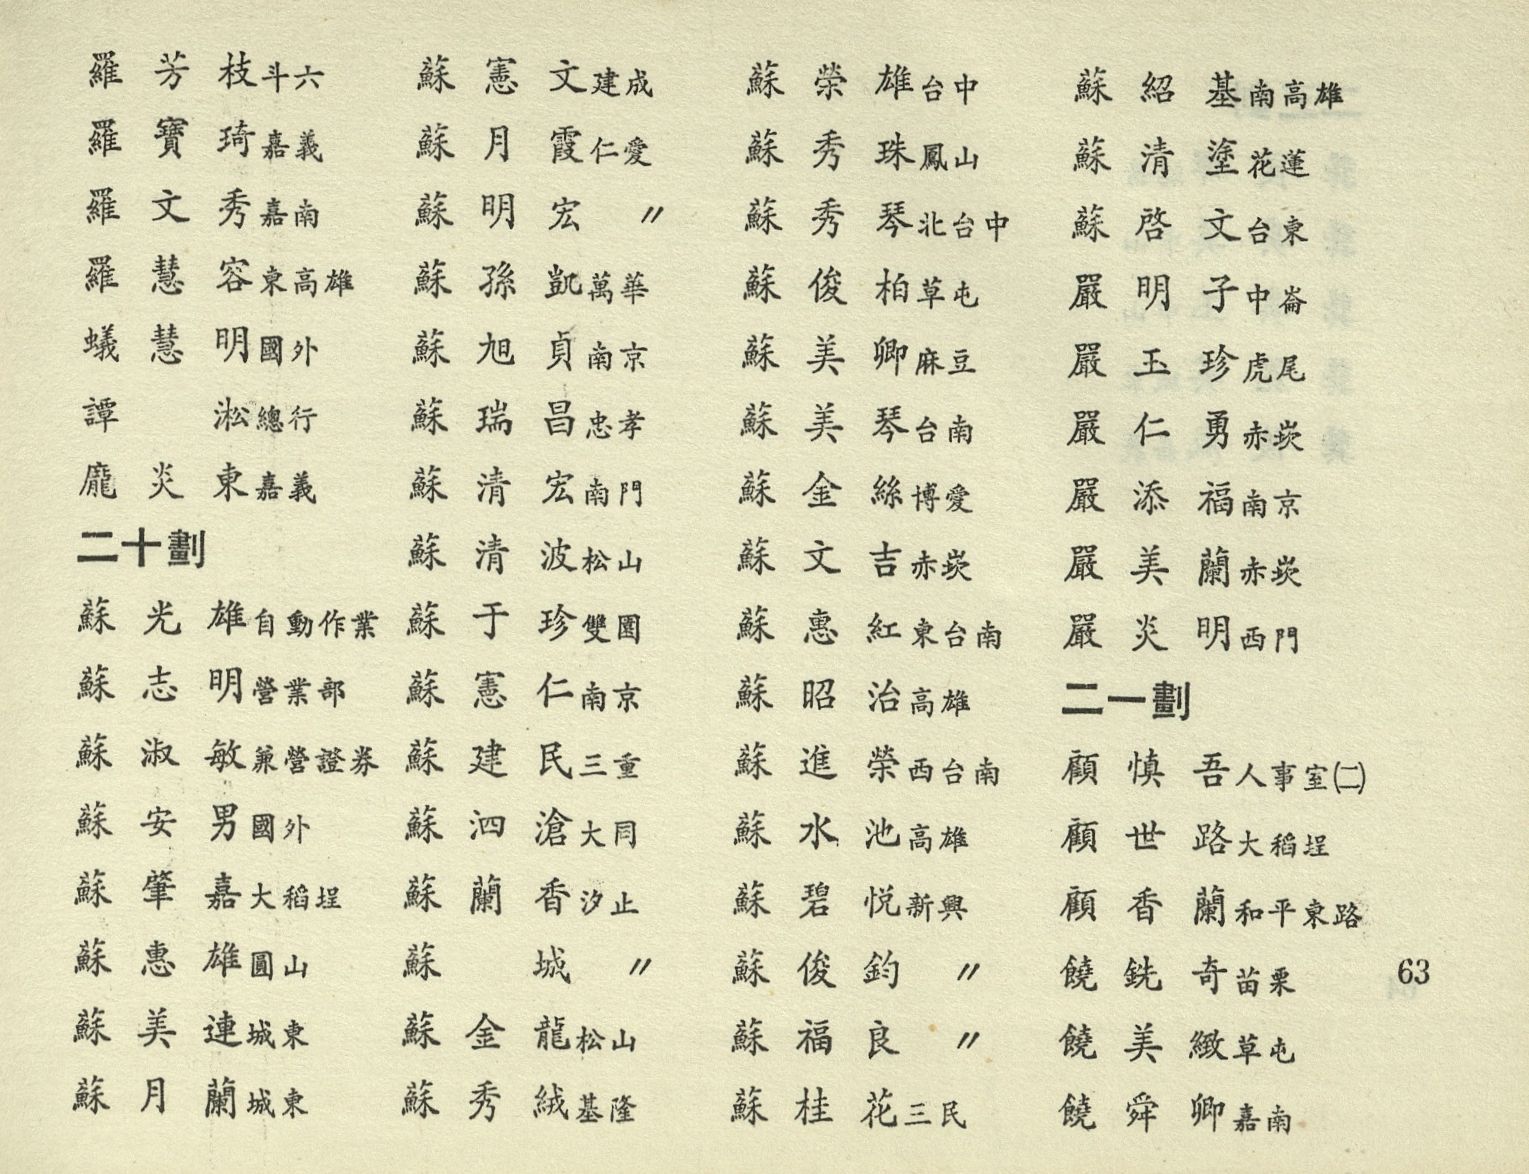 羅芳枝斗六
羅寶琦嘉義
羅文秀嘉南
羅慧容東高雄
蟻慧明國外
譚　淞總行
龐炎東嘉義
二十劃
蘇光雄自動作業
蘇志明營業部
蘇淑敏兼營證券
蘇安男國外
蘇肇嘉大稻埕
蘇惠雄圓山
蘇美連城東
蘇月蘭城東
蘇憲文建成
蘇月霞仁愛
蘇明宏　〃
蘇孫凱萬華
蘇旭貞南京
蘇瑞昌忠孝
蘇清宏南門
蘇清波松山
蘇于珍雙園
蘇憲仁南京
蘇建民三重
蘇泗滄大同
蘇蘭香汐止
蘇　城　〃
蘇金龍松山
蘇秀絨基隆
蘇榮雄台中
蘇秀珠鳳山
蘇秀琴北台中
蘇俊柏草屯
蘇美卿麻豆
蘇美琴台南
蘇金絲博愛
蘇文吉赤崁
蘇惠紅東台南
蘇昭治高雄
蘇進榮西台南
蘇水池高雄
蘇碧悅新興
蘇俊鈞　〃
蘇福良　〃
蘇桂花三民
蘇紹基南高雄
蘇清塗花蓮
蘇啓文台東
嚴明子中崙
嚴玉珍虎尾
嚴仁勇赤崁
嚴添福南京
嚴美蘭赤崁
嚴炎明西門
二一劃
顧慎吾人事室㈡
顧世路大稻埕
顧香蘭和平東路
饒銑奇苗栗
饒美緻草屯
饒舜卿嘉南
63